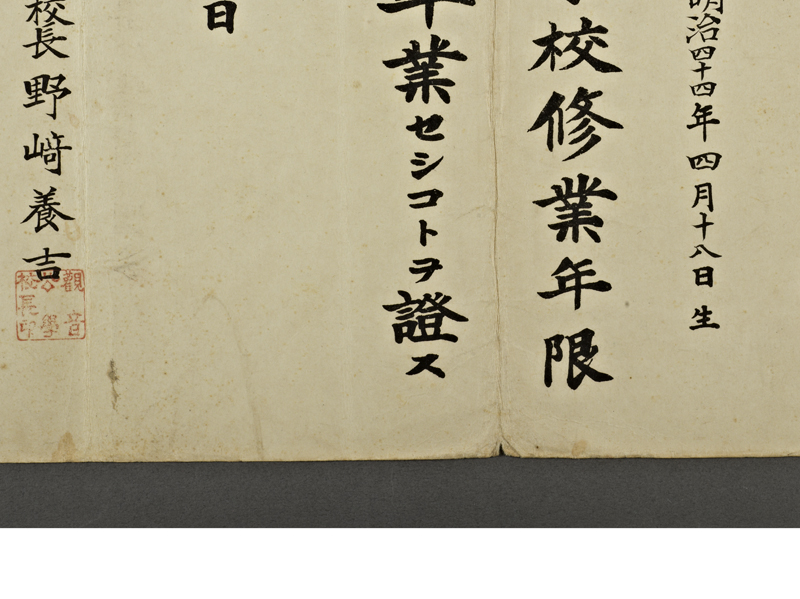 明治四十四年四月十八日生
校修業年限
業セシコトヲ證ス
日
校長野﨑養吉
觀音
公學
校長印